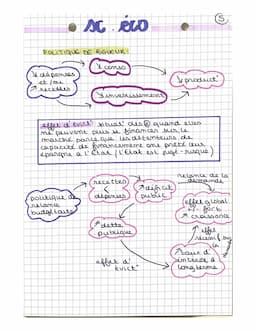 5
SC. ÉCO
POLITIQUE DE RIGUEUR:
↘ dépenses
et/ou
↗ recettes
↘ conso
↘ investissement
↘ product°
effet d'evict°: situat° des Ⓔ quand elles
ne peuvent plus se financer sur le
marché parce que les détenteurs de
capacité de financement ont prêté leur
épargne à l'État (l'État est jugé - risqué)
politique de
relance
budgétaire
recettes
<
dépenses
↗ déficit
public
relance de la
demande
effet global
+/- fort
croissance
↗ dette
publique
effet
↗ taux d'
intérêt à
long terme
effet d'
évict°